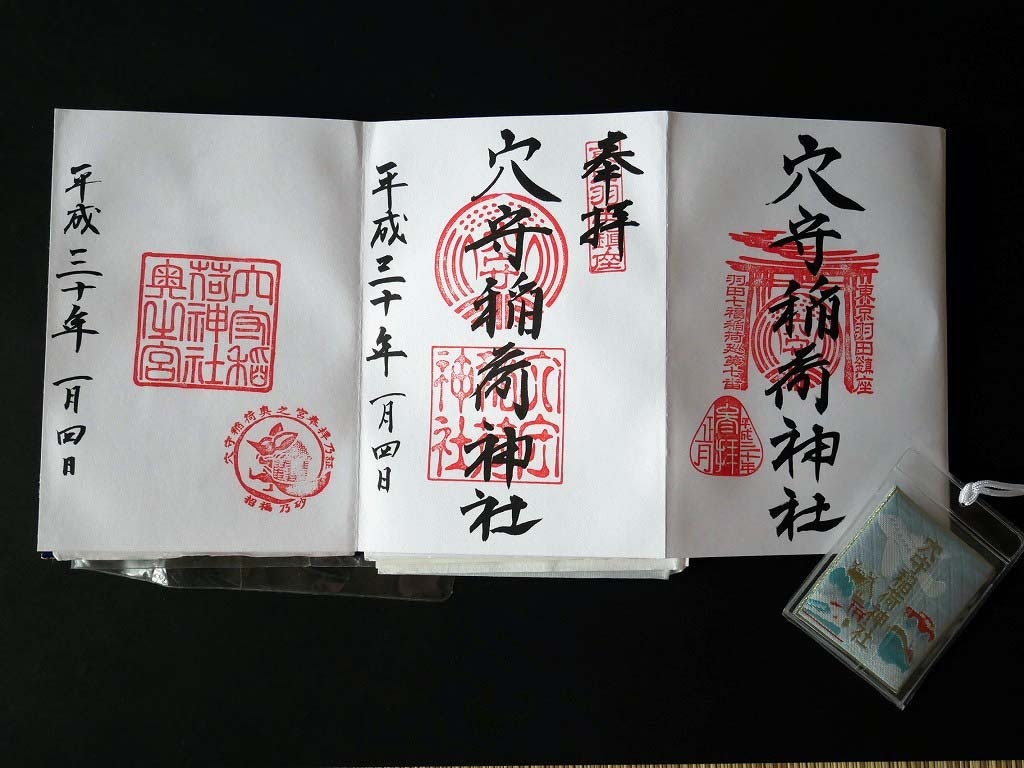 穴守稲荷神社
東京羽田鎮座
羽田七福稲荷巡第七番
平成三十年
正月
奉拝
穴守稲荷神社
穴守稲荷神社
平成三十年一月四日
穴守稲
荷神社
奥之宮
穴守稲荷奥之宮奉拝乃証
招福乃砂
平成三十年一月四日
穴守稲荷神社